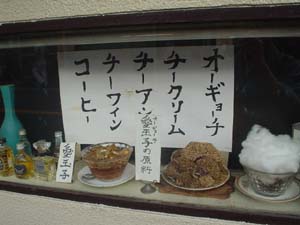 オーギョーチ
チークリーム
チーアン
チーワイン
コーヒー
愛玉子の原料
愛玉子